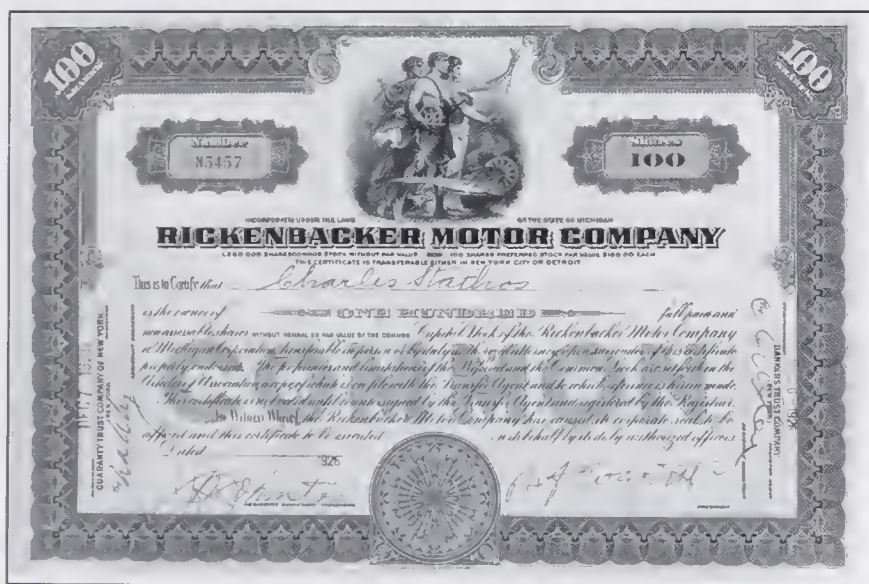 100
100
Number
N3457
Shares
100
INCORPORATED UNDER THE LAWS OF THE STATE OF MICHIGAN
RICKENBACKER MOTOR COMPANY
SHARES COMMON STOCK WITHOUT PAR VALUE 100 SHARES PREFERRED STOCK PAR VALUE $100.00 EACH
THIS CERTIFICATE IS TRANSFERABLE EITHER IN NEW YORK CITY OR DETROIT
This is to Certify that Charles Stathos
is the owner of ONE HUNDRED full paid and
non assessable shares WITHOUT NOMINAL OR PAR VALUE OF THE COMMON Capital Stock of the Rickenbacker Motor Company
a Michigan Corporation, transferable in person or by duly upon surrender of this certificate
properly endorsed. The preferences and limitations of the Preferred and the Common Stock are set forth in the
Articles of Association, a copy of which is on file with the Transfer Agent and to which reference is hereon made.
This certificate is not valid until countersigned by the Transfer Agent and registered by the Registrar.
In Witness Whereof, the Rickenbacker Motor Company has caused its corporate seal to be
affixed and this certificate to be executed on its behalf by its duly authorized officers
Dated 1926
GUARANTY TRUST COMPANY OF NEW YORK
BANKERS TRUST COMPANY
1926